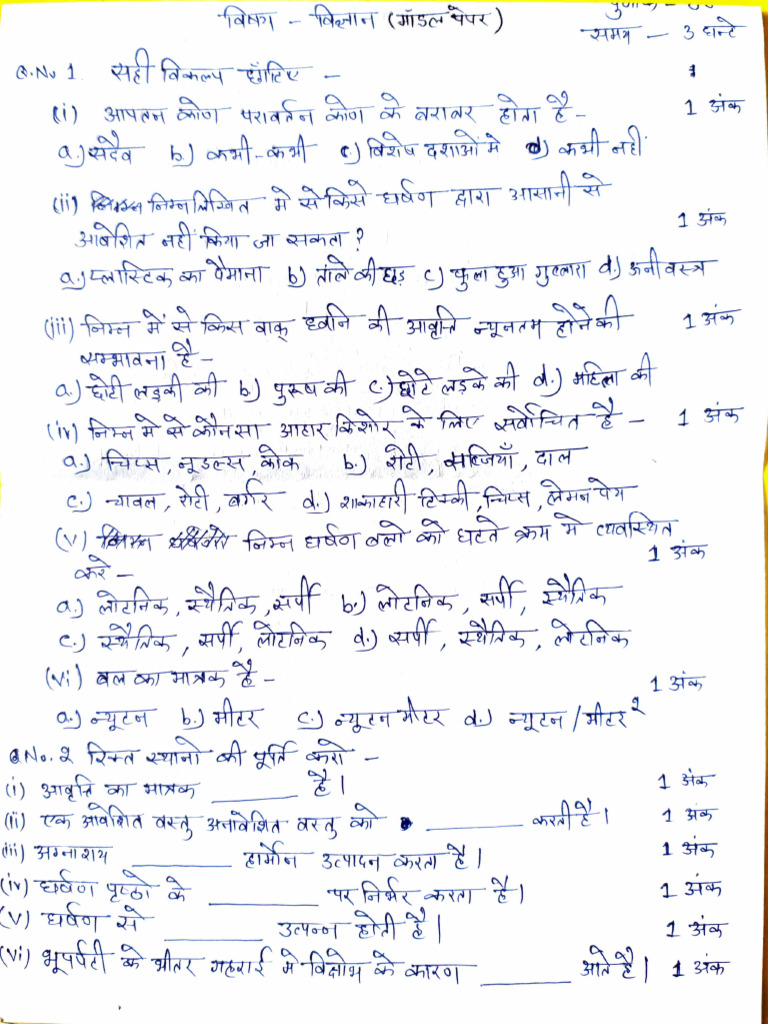 विषय - विज्ञान (मॉडल पेपर)
समय - 3 घन्टे
Q.No 1. सही विकल्प छाँटिए - 1
(i) आपतन कोण परावर्तन कोण के बराबर होता है - 1 अंक
a.) सदैव b.) कभी-कभी c) विशेष दशाओं मे d) कभी नहीं
(ii) निम्नलिखित मे से किसे घर्षण द्वारा आसानी से
आवेशित नहीं किया जा सकता ? 1 अंक
a.) प्लास्टिक का पैमाना b) तांबे की छड़ c) फुला हुआ गुब्बारा d.) ऊनी वस्त्र
(iii) निम्न में से किस वाक् ध्वनि की आवृत्ति न्यूनतम होने की 1 अंक
सम्भावना है -
a.) छोटी लड़की की b.) पुरूष की c.) छोटे लड़के की d.) महिला की
(iv) निम्न मे से कौनसा आहार किशोर के लिए सर्वोचित है - 1 अंक
a.) चिप्स, नूडल्स, कोक b.) रोटी, सब्जियाँ, दाल
c.) चावल, रोटी, बर्गर d.) शाकाहारी टिक्की, चिप्स, लेमन पेय
(v) निम्न घर्षण बलो को घटते क्रम मे व्यवस्थित
करे - 1 अंक
a.) लोटनिक, स्थैतिक, सर्पी b.) लोटनिक, सर्पी, स्थैतिक
c.) स्थैतिक, सर्पी, लोटनिक d.) सर्पी, स्थैतिक, लोटनिक
(vi) बल का मात्रक है - 1 अंक
a.) न्यूटन b.) मीटर c.) न्यूटन मीटर d.) न्यूटन / मीटर²
Q No. 2 रिक्त स्थानो की पूर्ति करो -
(i) आवृत्ति का मात्रक ______ है। 1 अंक
(ii) एक आवेशित वस्तु अनावेशित वस्तु को ______ करती है। 1 अंक
(iii) अग्नाशय ______ हार्मोन उत्पादन करता है। 1 अंक
(iv) घर्षण पृष्ठो के ______ पर निर्भर करता है। 1 अंक
(v) घर्षण से ______ उत्पन्न होती है। 1 अंक
(vi) भूपर्पटी के भीतर गहराई मे विक्षोभ के कारण ______ आते है। 1 अंक